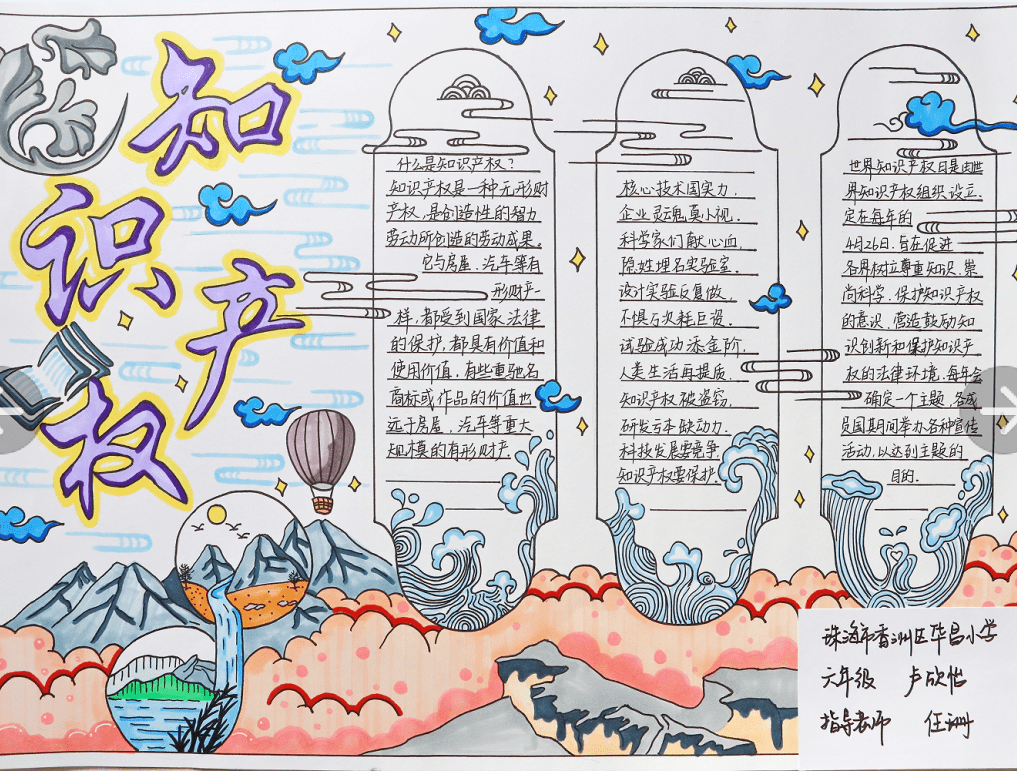 知
识
产
权
什么是知识产权？
知识产权是一种无形财
产权，是创造性的智力
劳动所创造的劳动成果。
它与房屋、汽车等有
形财产一
样，都受到国家法律
的保护，都具有价值和
使用价值。有些重驰名
商标或作品的价值也
远于房屋、汽车等重大
规模的有形财产。
核心技术国实力，
企业灵魂莫小视。
科学家们献心血，
隐姓埋名实验室。
设计实验反复做，
不惧亏次耗巨资。
试验成功添金阶，
人类生活再提质。
知识产权被盗窃，
研发亏本缺动力。
科技发展需竞争，
知识产权要保护。
世界知识产权日是由世
界知识产权组织设立，
定在每年的
4月26日，旨在促进
各界树立尊重知识、崇
尚科学、保护知识产权
的意识，营造鼓励知
识创新和保护知识产
权的法律环境，每年会
确定一个主题，各成
员国期间举办各种宣传
活动，以达到主题的
目的。
珠海市香洲区华昌小学
六年级 卢欣怡
指导老师 任珊